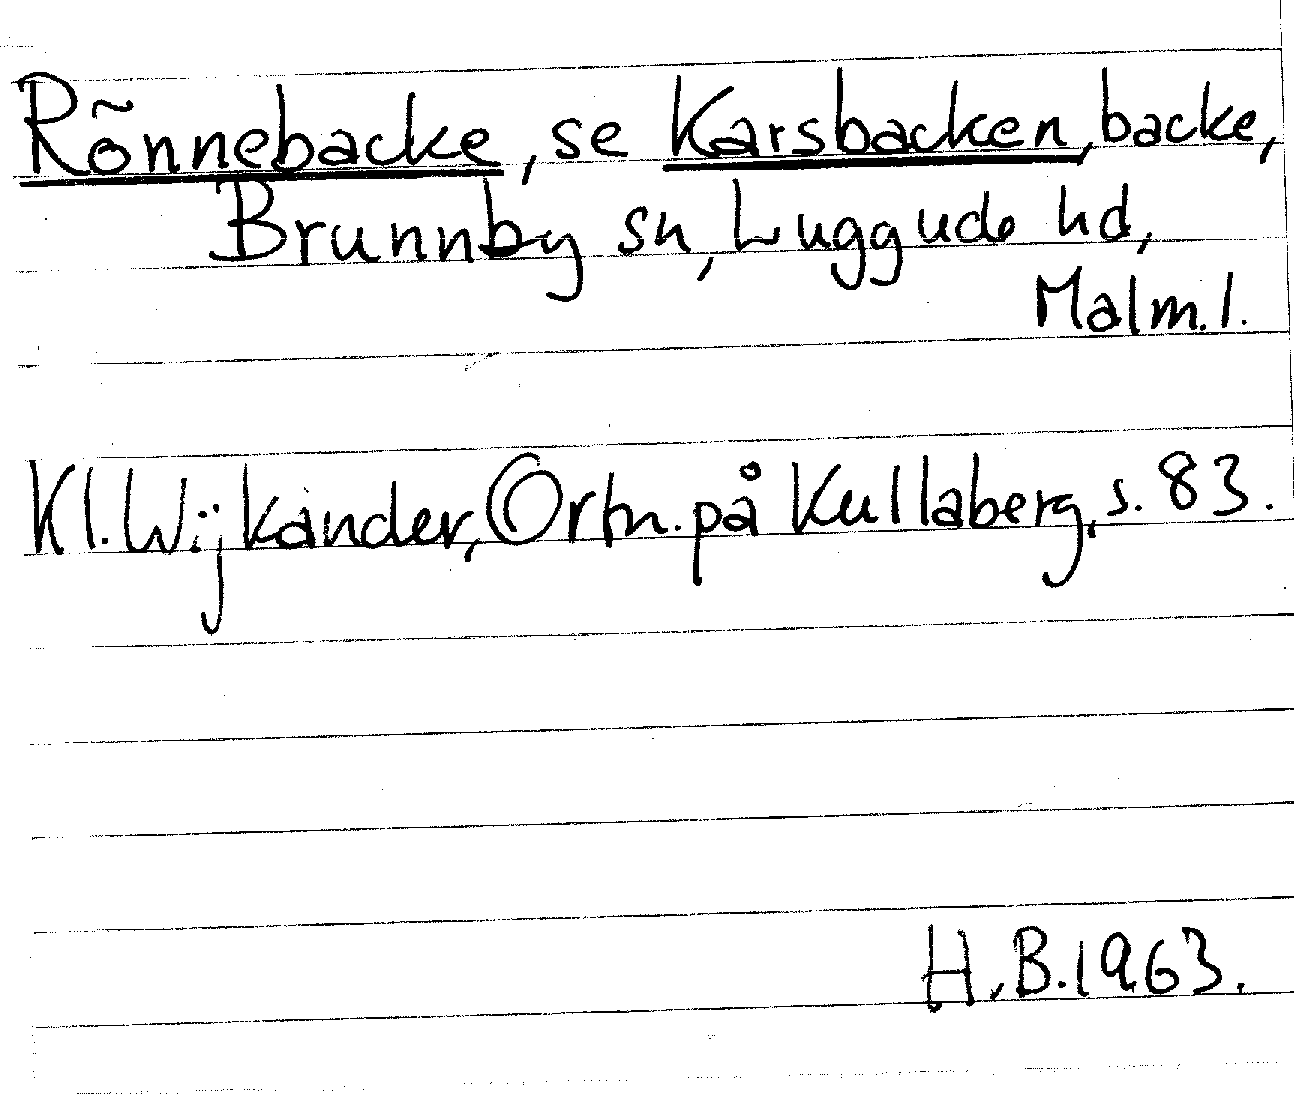 Rõnnebacke, se Karsbacken, backe,
Brunnby sn, Luggude hd,
Malm. l.
Kl. Wijkander, Ortn. på Kullaberg, s. 83.
H.B. 1963.